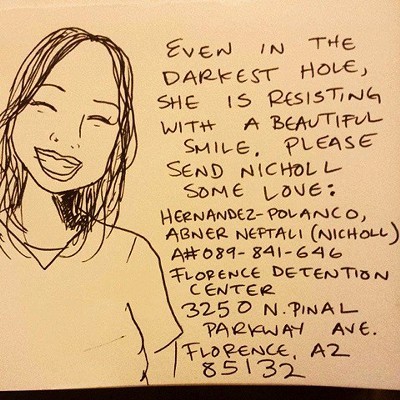 EVEN IN THE
DARKEST HOLE,
SHE IS RESISTING
WITH A BEAUTIFUL
SMILE. PLEASE
SEND NICHOLL
SOME LOVE:
HERNANDEZ-POLANCO,
ABNER NEFTALI (NICHOLL)
A#089-841-646
FLORENCE DETENTION
CENTER
3250 N. PINAL
PARKWAY AVE.
FLORENCE, AZ
85132